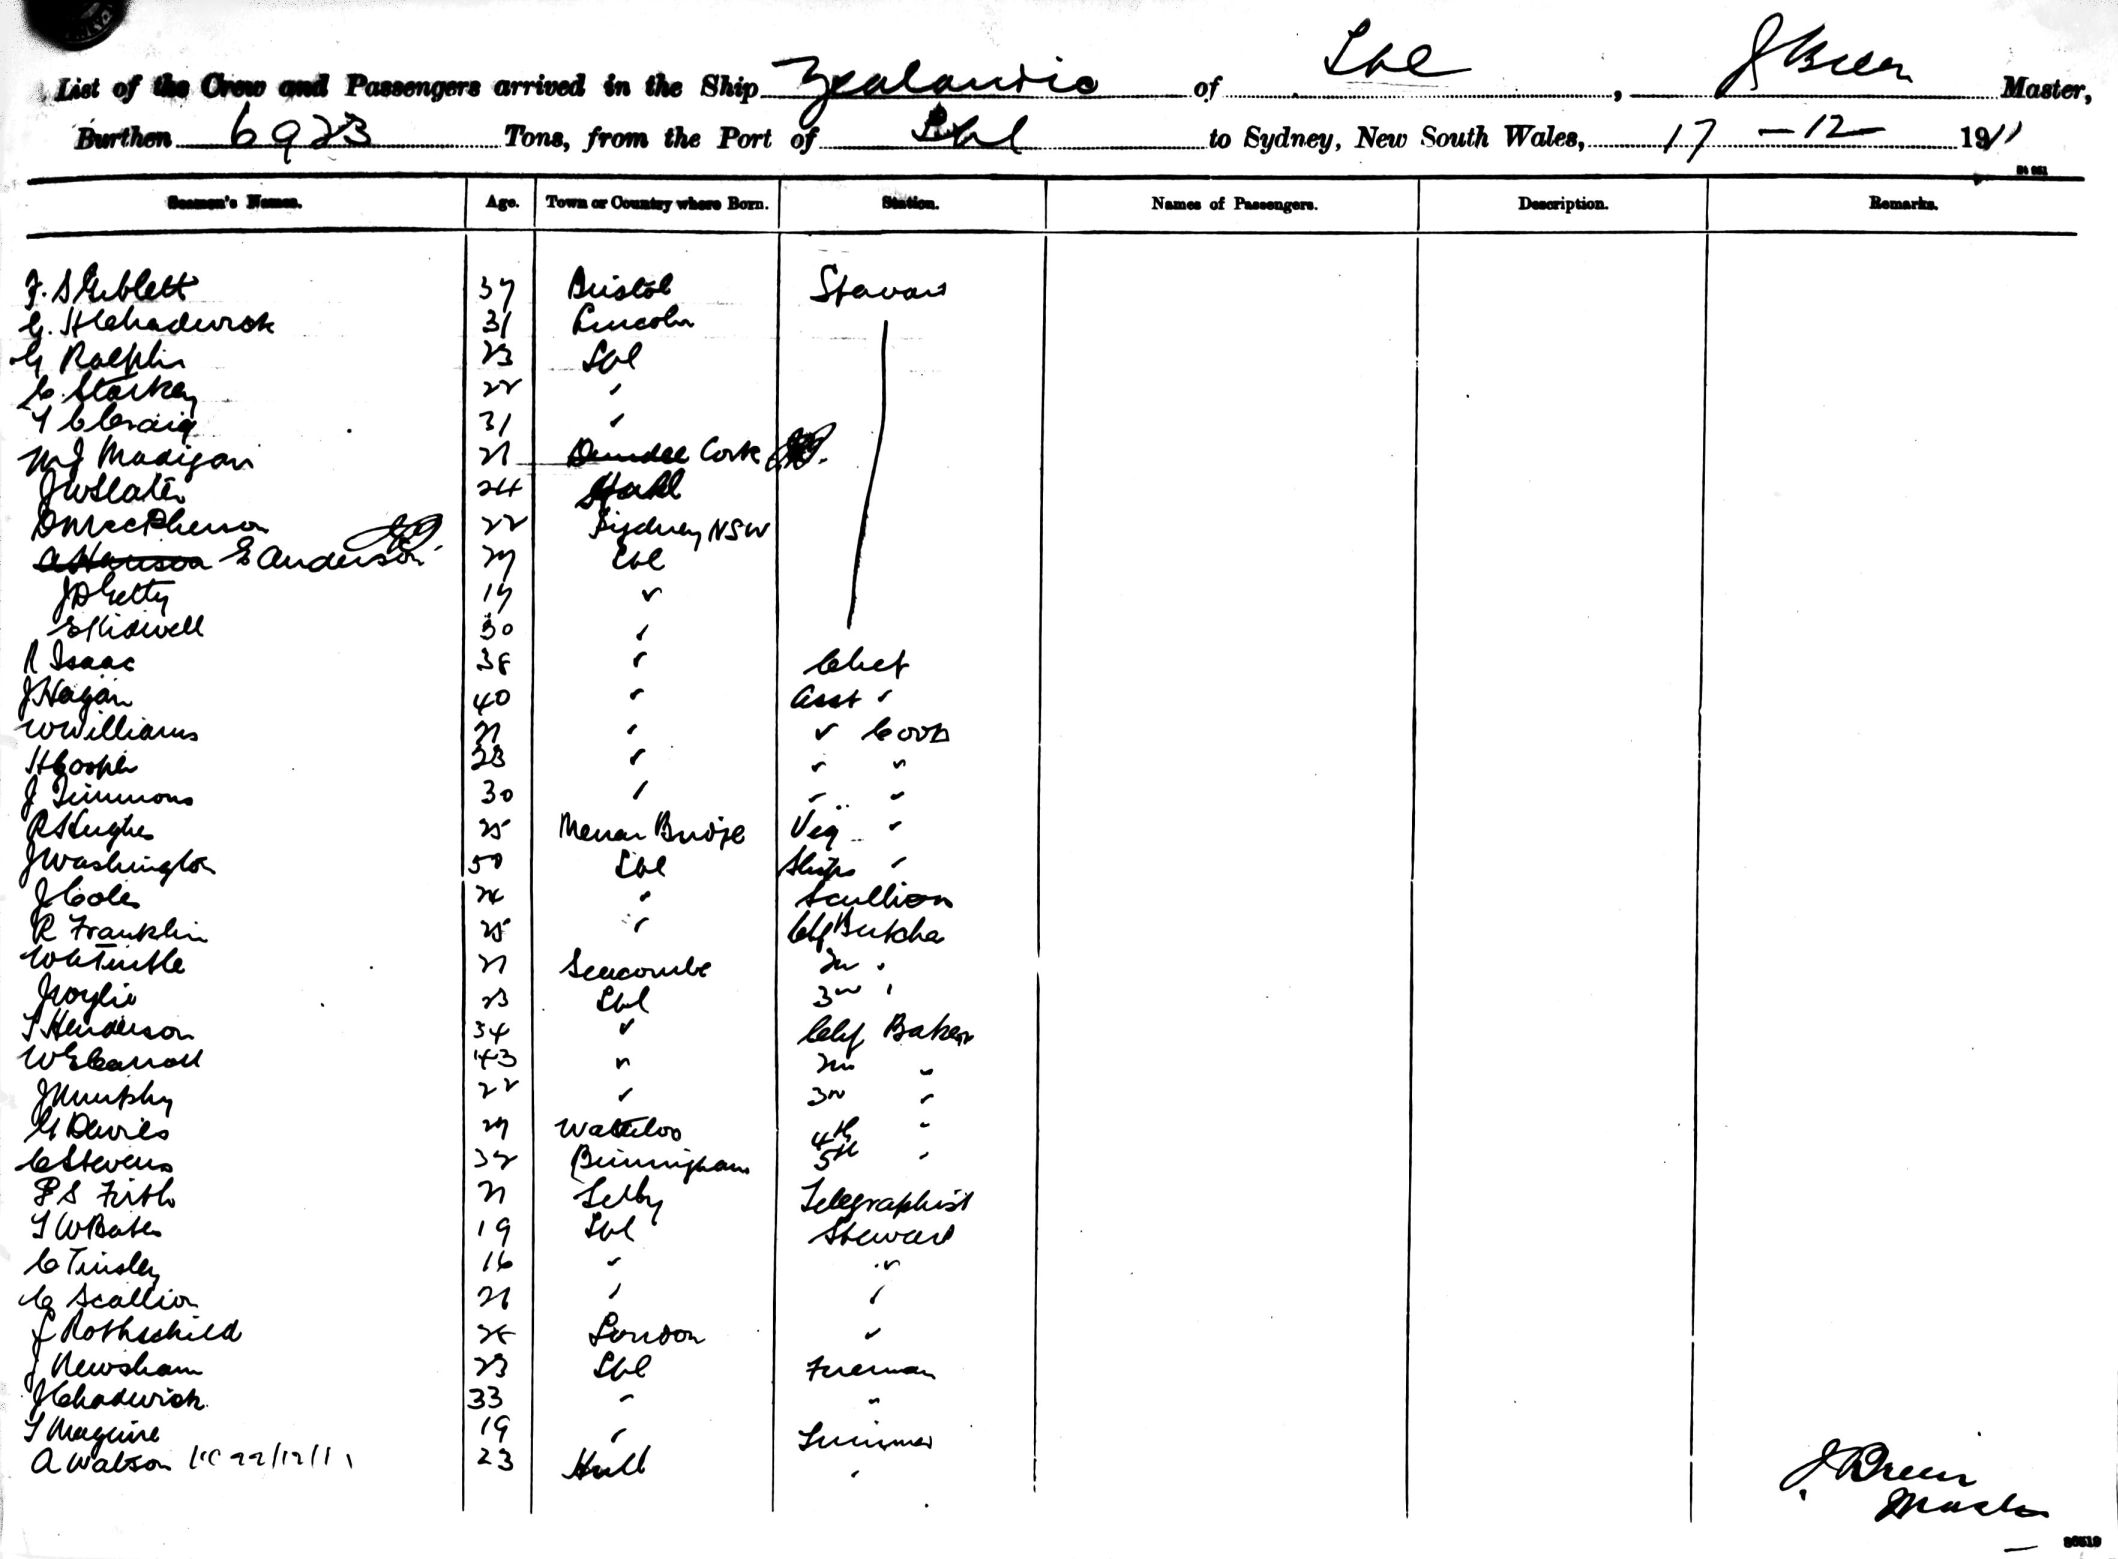 List of the Crew and Passengers arrived in the Ship Zealandic of Lbl, J Breen Master,
Burthen 6923 Tons, from the Port of Lbl to Sydney, New South Wales, 17-12-1911
Seamen's Names. Age. Town or Country where Born. Station. Names of Passengers. Description. Remarks.
F. S Giblett 37 Bristol Steward
G. H Chadwick 31 Lincoln
G Ralphs 23 Lbl
C. Starkey 22 "
T C Craig 31 "
M J Madigan 21 Dundee Cork
J W Slater 24 Hull
D MacPherson 22 Sydney NSW
A Hanson E Anderson 27 Lbl
J D Getty 19 "
E Kidwell 30 "
R Isaac 38 " Chef
J Hagan 40 " Asst "
W Williams 21 " " Cook
H Cooper 23 " " "
J Timmons 30 " " "
R Hughes 25 Menai Bridge Veg "
J Washington 50 Lbl Ships "
J Coles 24 " Scullion
R Franklin 25 " Chf Butcher
W A Tuttle 21 Seacombe 2nd "
J Wylie 23 Lbl 3rd "
T Henderson 34 " Chf Baker
W E Carroll 43 " 2nd "
J Murphy 22 " 3rd "
G Davies 27 Waterloo 4th "
C Stevens 32 Birmingham 5th "
P S Firth 21 Selby Telegraphist
T W Bates 19 Lbl Steward
C Tinsley 16 " "
C Scallion 21 " "
J Rothschild 25 London "
J Newsham 23 Lbl Fireman
J Chadwick 33 " "
T Maguire 19 " Trimmer
A Watson 22/12/11 23 Hull "
J Breen
Master